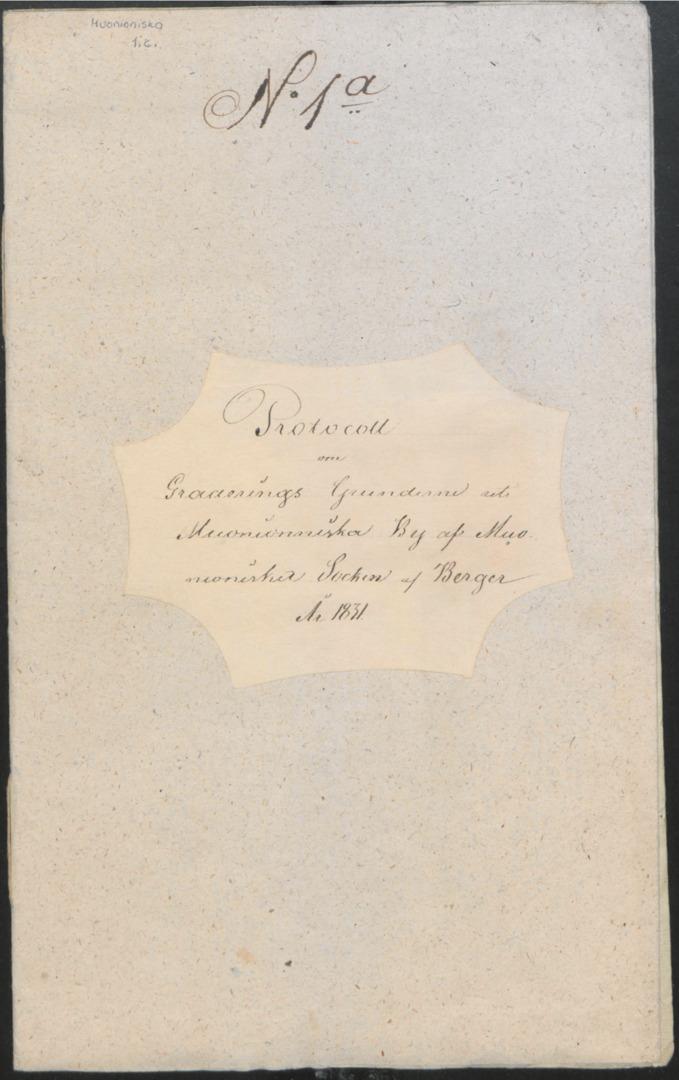 Muonionisko
1.c.
N.º 1 a
Protocoll
om
Graderings Grunderne
Muonionniska By af Muo-
nioniska Socken af Berger
År 1831.